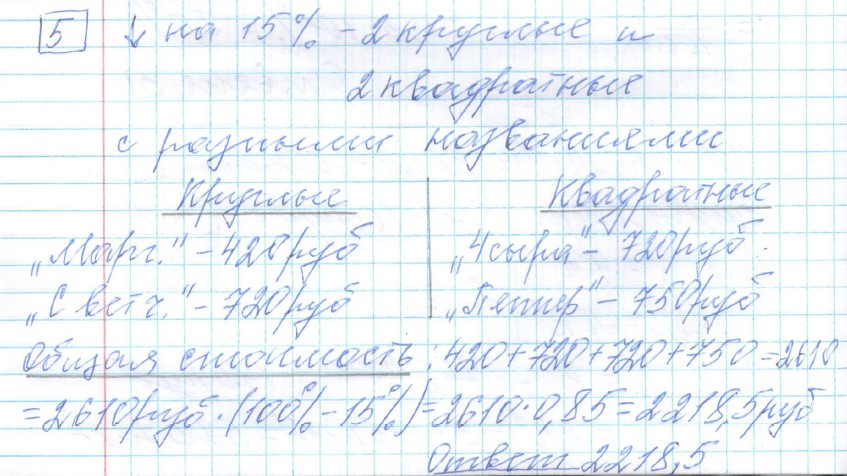 5 ↓ на 15% - 2 круглые и
2 квадратные
с разными названиями
Круглые Квадратные
"Марг." - 420 руб "4 сыра" - 720 руб.
"С ветч." - 720 руб "Пеппер" - 750 руб
Общая стоимость: 420+720+720+750=2610
=2610 руб·(100%-15%)=2610·0,85=2218,5 руб
Ответ 2218,5